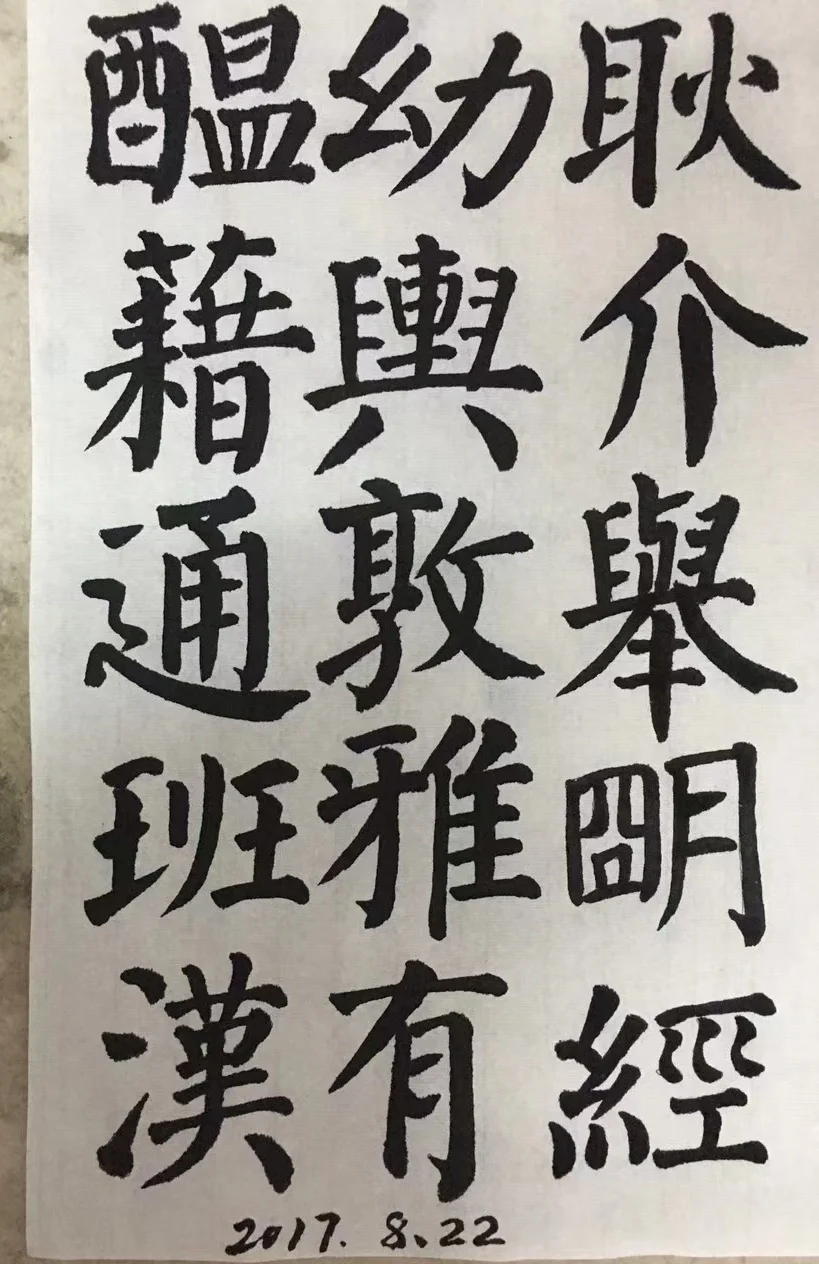 耿介舉明經
幼輿敦雅有
醖藉通班漢
2017.8.22